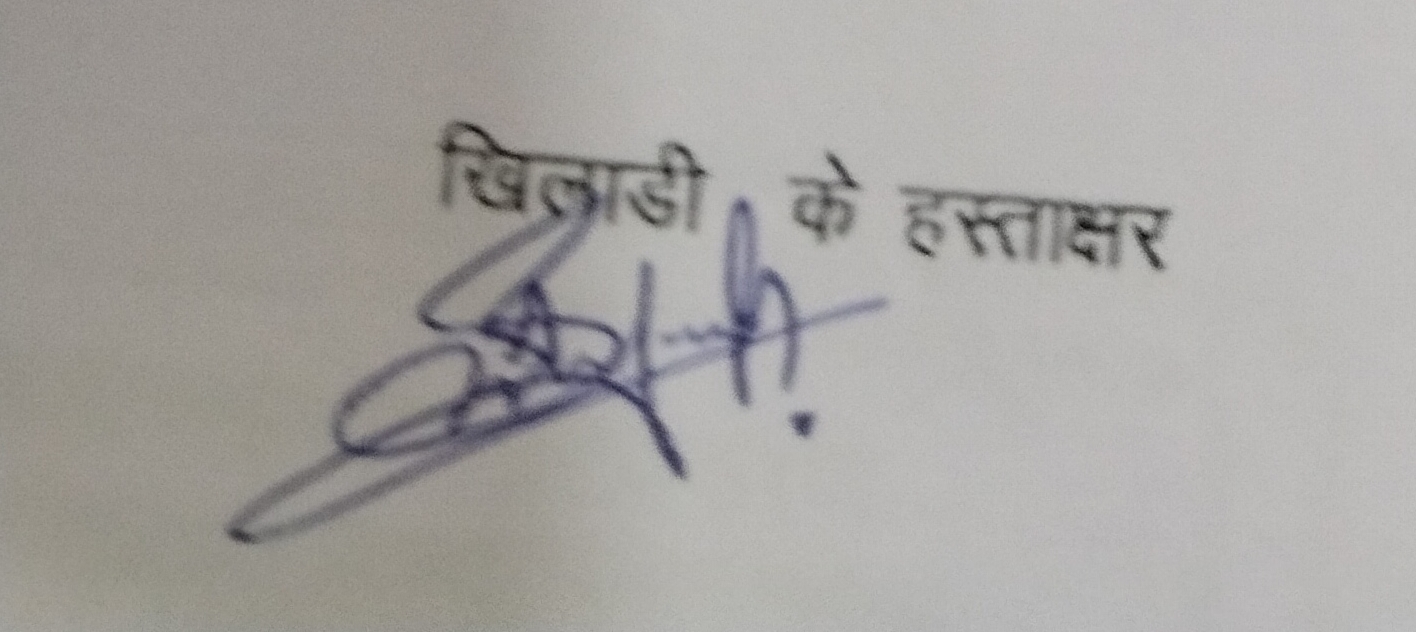 खिलाडी के हस्ताक्षर